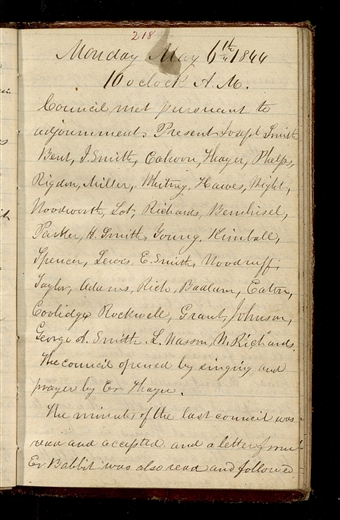 218
Monday May 6th 1844
10 oclock A.M.
Council met pursuant to
adjournment, Present Joseph Smith
Bent, J. Smith, Cahoon, Thayer, Phelps,
Rigdon, Miller, Whitney, Hawes, Wight,
Woodworth, Lot, Richards, Bernhisel,
Parker, H. Smith, Young, Kimball,
Spencer, Lewis, E. Smith, Woodruff,
Taylor, Adams, Rich, Badlam, Eaton,
Coolidge, Rockwell, Grant, Johnson,
George A. Smith, L. Wasson, W. Richards
The council opened by singing and
prayer by Er Thayer.
The minutes of the last council was
read and accepted and a letter from
Er Babbit was also read and followed